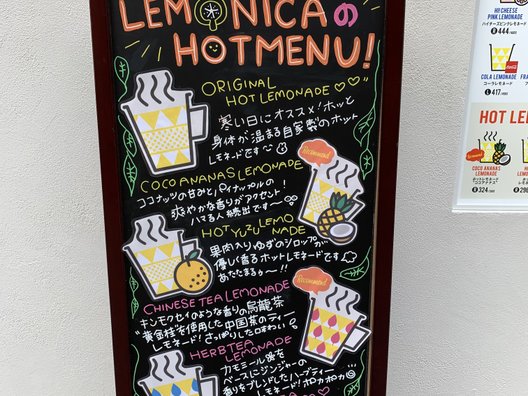 LEMONICAの
HOTMENU!
ORIGINAL
HOT LEMONADE
寒い日にオススメ!ホッと
身体が温まる自家製のホット
レモネードです〜
COCOANANAS LEMONADE
ココナッツの甘みとパイナップルの
爽やかな香りがアクセント!
ハマる人続出です〜
Recommend!
HOT YUZU LEMO
NADE
果肉入りゆずのシロップが
優しく香るホットレモネードです
あたたまるぅ〜!!
CHINESE TEA LEMONADE
キンモクセイのような香りの烏龍茶
"黄金桂"を使用した中国茶のティー
レモネード!さっぱりした口あたり
Recommend!
HERBTEA
LEMONADE
カモミール
ベースにジンジャーの
香りをブレンドしたハーブティー
レモネード!ポカポカ
HI! CHEESE
PINK LEMONADE
ハイチーズピンクレモネード
444
COLA LEMONADE
コーラレモネード
L 417
FRA
HOT LEM
COCO ANANAS
LEMONADE
ホットレモネード
"ココアナナス"
324
290